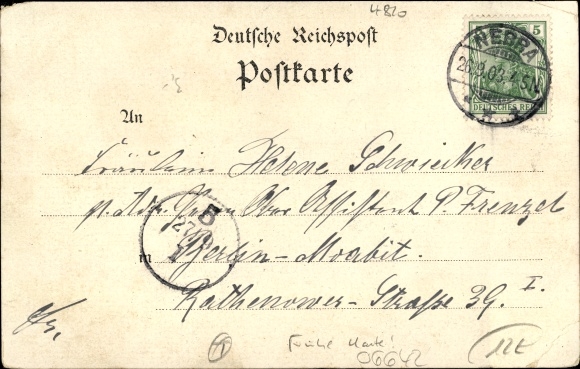 4820
Deutsche Reichspost
Postkarte
5
NEBRA
DEUTSCHES REICH
An
Fräulein Helene Schwiecker
p. Adr. Herrn Ober Assistent P. Frenzel
in Berlin-Moabit.
Rathenower-Straße 39. I.
Frühe Karte!
06642
12E